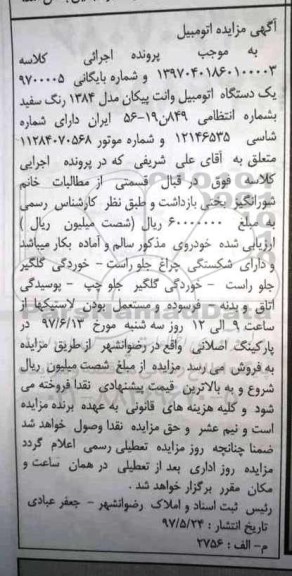 آگهی مزایده اتومبیل
به موجب پرونده اجرائی کلاسه
۱۳۹۷۰۴۰۱۸۶۰۱۰۰۰۰۳ و شماره بایگانی ۹۷۰۰۰۰۵
یک دستگاه اتومبیل وانت پیکان مدل ۱۳۸۴ رنگ سفید
بشماره انتظامی ۸۴۹ن۱۹-۵۶ ایران دارای شماره
شاسی ۱۲۱۴۶۵۳۵ و شماره موتور ۱۱۲۸۴۰۷۰۵۶۸
متعلق به آقای علی شریفی که در پرونده اجرایی
کلاسه فوق در قبال قسمتی از مطالبات خانم
شورانگیز بحتی بازداشت و طبق نظر کارشناس رسمی
به مبلغ ۶۰۰۰۰۰۰۰ ریال (شصت میلیون ریال)
ارزیابی شده خودروی مذکور سالم و آماده بکار میباشد
و دارای شکستگی چراغ جلو راست - خوردگی گلگیر
جلو راست - خوردگی گلگیر جلو چپ - پوسیدگی
اتاق و بدنه - فرسوده و مستعمل بودن لاستیکها از
ساعت ۹ الی ۱۲ روز سه شنبه مورخ ۹۷/۶/۱۳ در
پارکینگ اصلانی واقع در رضوانشهر از طریق مزایده
به فروش می رسد مزایده از مبلغ شصت میلیون ریال
شروع و به بالاترین قیمت پیشنهادی نقدا فروخته می
شود و کلیه هزینه های قانونی به عهده برنده مزایده
است و نیم عشر و حق مزایده نقدا وصول خواهد شد
ضمنا چنانچه روز مزایده تعطیلی رسمی اعلام گردد
مزایده روز اداری بعد از تعطیلی در همان ساعت و
مکان مقرر برگزار خواهد شد.
رئیس ثبت اسناد و املاک رضوانشهر - جعفر عبادی
تاریخ انتشار: ۹۷/۵/۲۴
م- الف: ۲۷۵۶